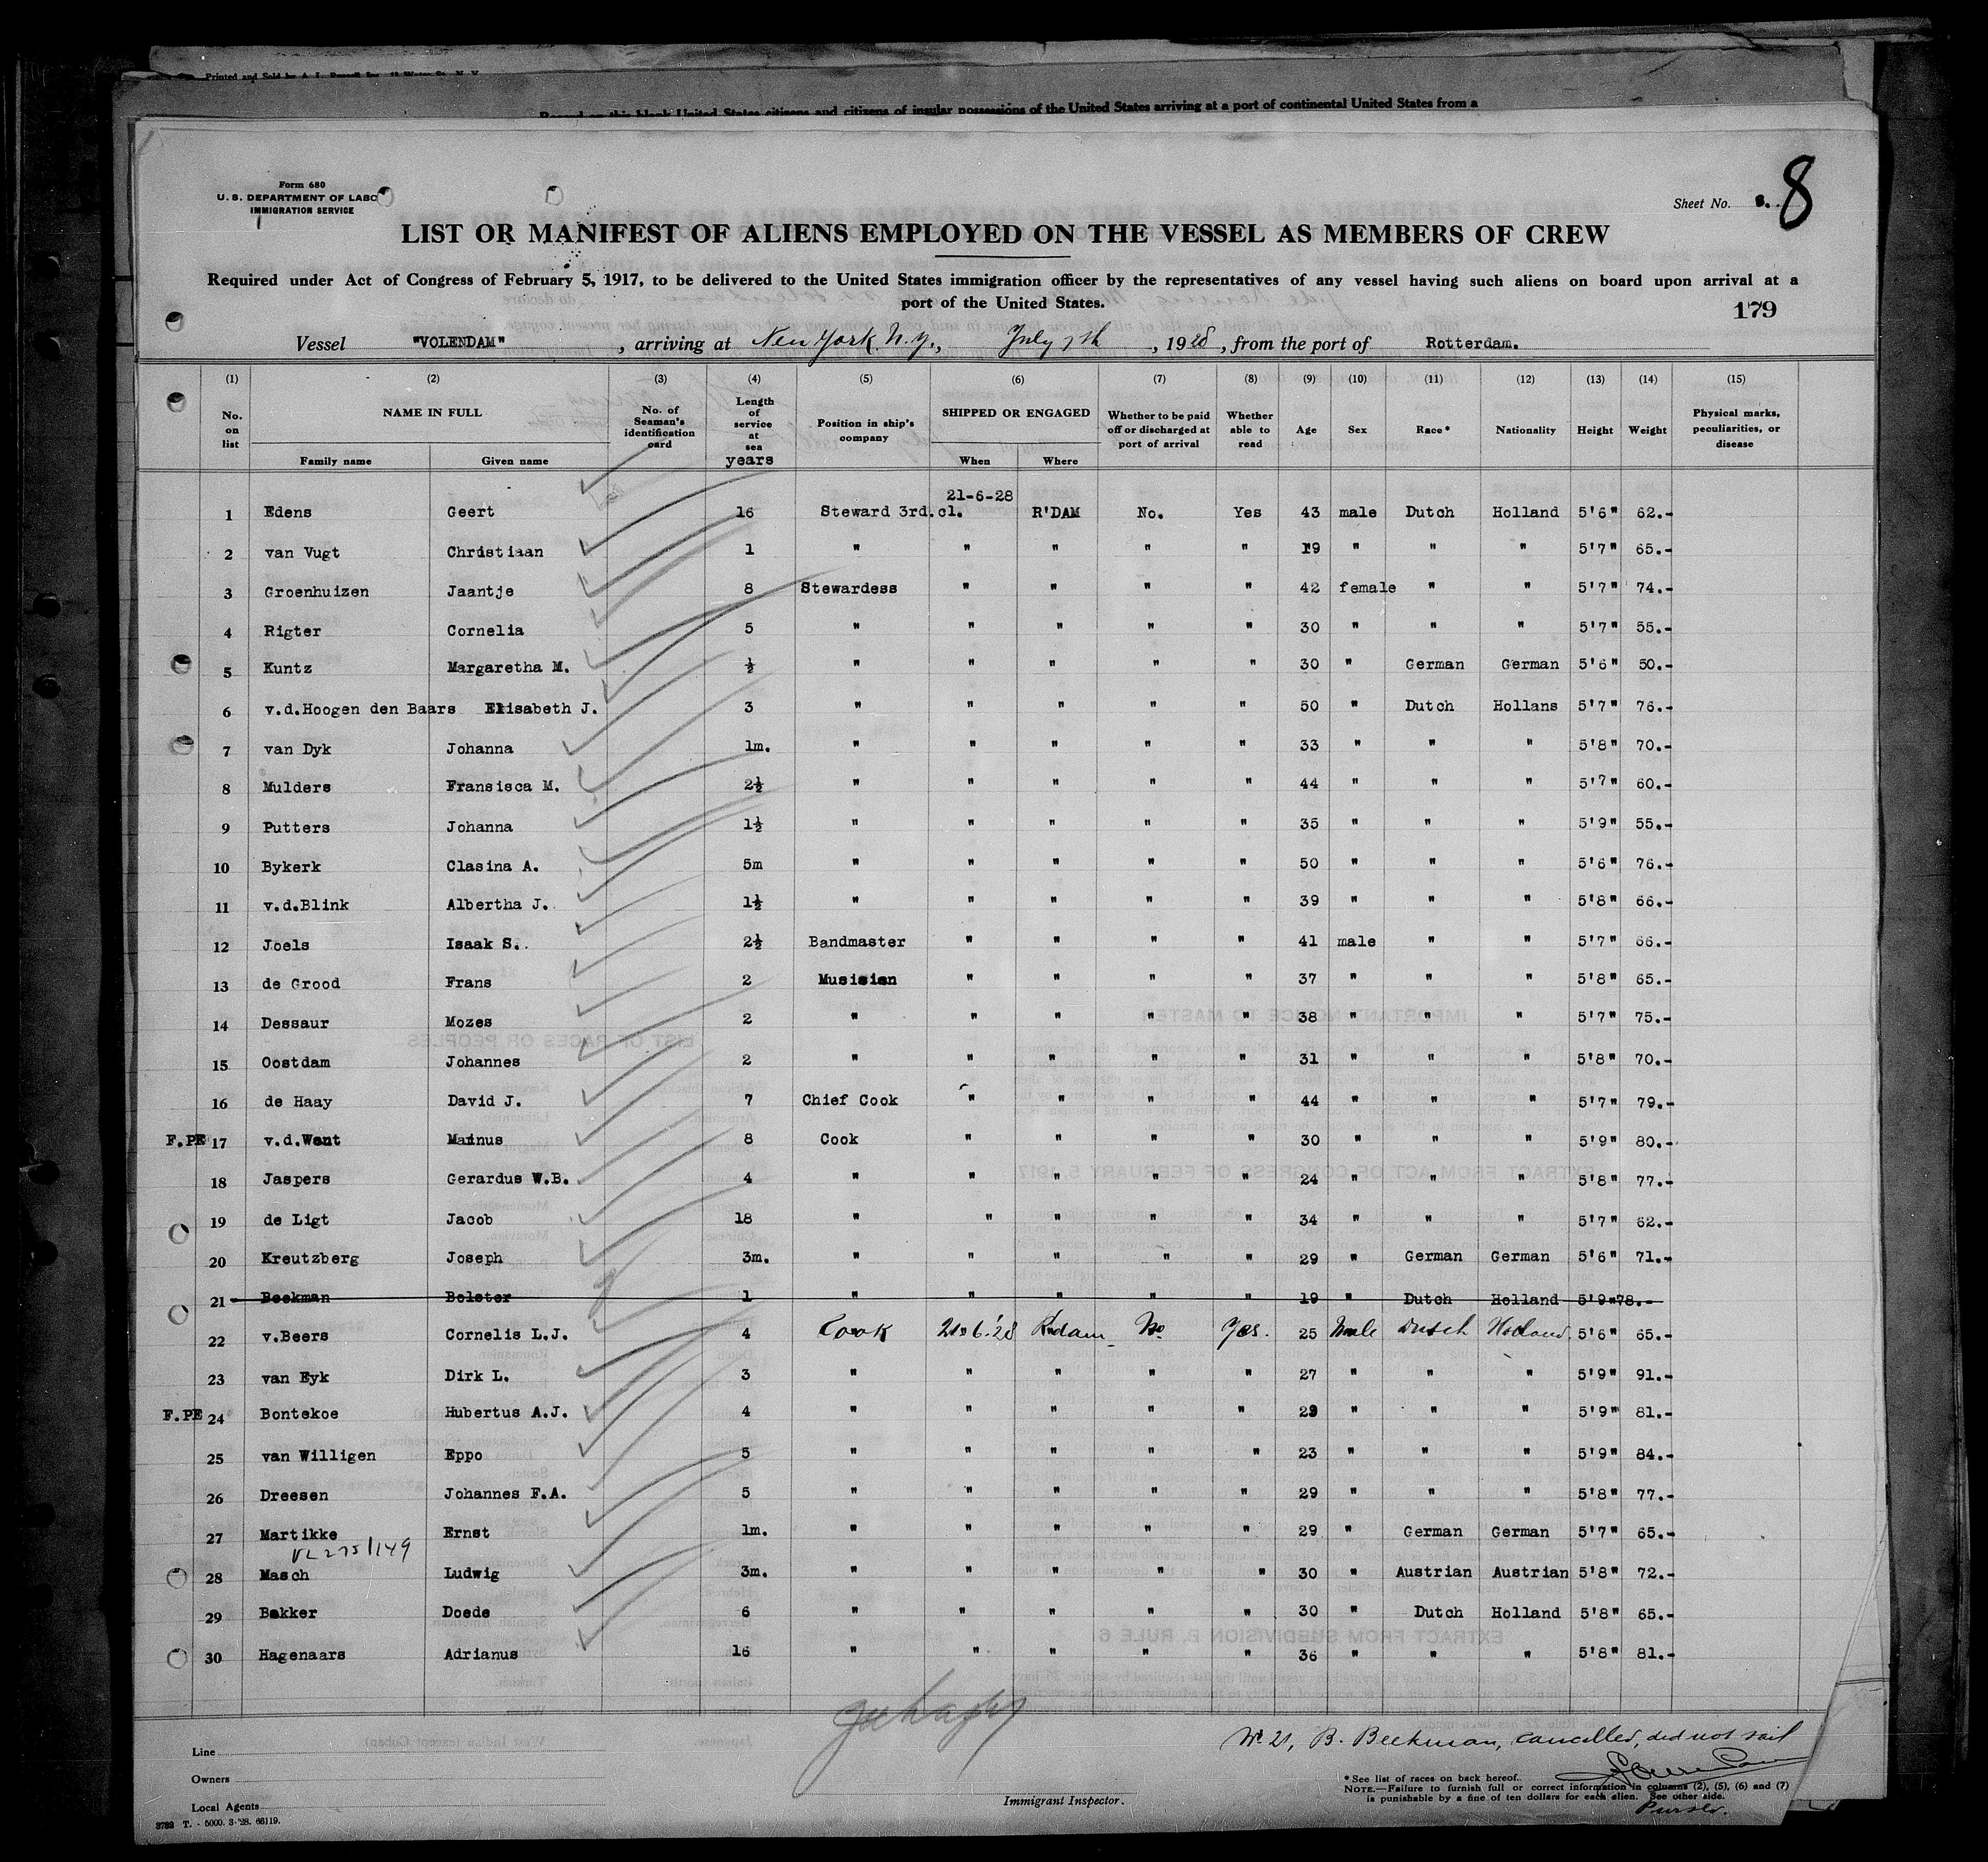 Printed and Sold by A. L. Russell Inc.
Record on this blank United States citizens and citizens of insular possessions of the United States arriving at a port of continental United States from a
Form 680
U. S. DEPARTMENT OF LABO
IMMIGRATION SERVICE
Sheet No. 8
LIST OR MANIFEST OF ALIENS EMPLOYED ON THE VESSEL AS MEMBERS OF CREW
Required under Act of Congress of February 5, 1917, to be delivered to the United States immigration officer by the representatives of any vessel having such aliens on board upon arrival at a
port of the United States.
179
Vessel "VOLENDAM", arriving at New York N.Y., July 7th, 1928, from the port of Rotterdam.
(1) (2) (3) (4) (5) (6) (7) (8) (9) (10) (11) (12) (13) (14) (15)
No. on list NAME IN FULL Family name Given name No. of Seaman's identification card Length of service at sea years Position in ship's company SHIPPED OR ENGAGED When Where Whether to be paid off or discharged at port of arrival Whether able to read Age Sex Race* Nationality Height Weight Physical marks, peculiarities, or disease
21-6-28
1 Edens Geert 16 Steward 3rd.cl. R'DAM No. Yes 43 male Dutch Holland 5'6" 62.-
2 van Vugt Christiaan 1 " " " " " 19 " " " 5'7" 65.-
3 Groenhuizen Jaantje 8 Stewardess " " " " 42 female " " 5'7" 74.-
4 Rigter Cornelia 5 " " " " " 30 " " " 5'7" 55.-
5 Kuntz Margaretha M. ½ " " " " " 30 " German German 5'6" 50.-
6 v.d.Hoogen den Baars Elisabeth J. 3 " " " " " 50 " Dutch Hollans 5'7" 76.-
7 van Dyk Johanna 1m. " " " " " 33 " " " 5'8" 70.-
8 Mulders Fransisca M. 2½ " " " " " 44 " " " 5'7" 60.-
9 Putters Johanna 1½ " " " " " 35 " " " 5'9" 55.-
10 Bykerk Clasina A. 5m " " " " " 50 " " " 5'6" 76.-
11 v.d.Blink Albertha J. 1½ " " " " " 39 " " " 5'8" 66.-
12 Joels Isaak S. 2½ Bandmaster " " " " 41 male " " 5'7" 66.-
13 de Grood Frans 2 Musisian " " " " 37 " " " 5'8" 65.-
14 Dessaur Mozes 2 " " " " " 38 " " " 5'7" 75.-
15 Oostdam Johannes 2 " " " " " 31 " " " 5'8" 70.-
16 de Haay David J. 7 Chief Cook " " " " 44 " " " 5'7" 79.-
F.PE 17 v.d.Went Mainus 8 Cook " " " " 30 " " " 5'9" 80.-
18 Jaspers Gerardus W.B. 4 " " " " " 24 " " " 5'8" 77.-
19 de Ligt Jacob 18 " " " " " 34 " " " 5'7" 62.-
20 Kreutzberg Joseph 3m. " " " " " 29 " German German 5'6" 71.-
21 Beekman Bolster 1 " " " " " 19 " Dutch Holland 5'9" 78.-
22 v.Beers Cornelis L.J. 4 Cook 21-6-'28 R'dam No Yes. 25 Male Dutch Holland 5'6" 65.-
23 van Eyk Dirk L. 3 " " " " " 27 " " " 5'9" 91.-
F.PE 24 Bontekoe Hubertus A.J. 4 " " " " " 23 " " " 5'9" 81.-
25 van Willigen Eppo 5 " " " " " 23 " " " 5'9" 84.-
26 Dreesen Johannes F.A. 5 " " " " " 29 " " " 5'8" 77.-
27 Martikke Ernst 1m. " " " " " 29 " German German 5'7" 65.-
VL 275/149
28 Masch Ludwig 3m. " " " " " 30 " Austrian Austrian 5'8" 72.-
29 Bakker Doede 6 " " " " " 30 " Dutch Holland 5'8" 65.-
30 Hagenaars Adrianus 16 " " " " " 36 " " " 5'8" 81.-
No 21, B. Beekman, cancelled, did not sail
Line
Owners
Local Agents
Immigrant Inspector.
* See list of races on back hereof.
NOTE.—Failure to furnish full or correct information in columns (2), (5), (6) and (7)
is punishable by a fine of ten dollars for each alien. See other side.
Purser.
3783 T. - 5000. 3-'28. 66119.